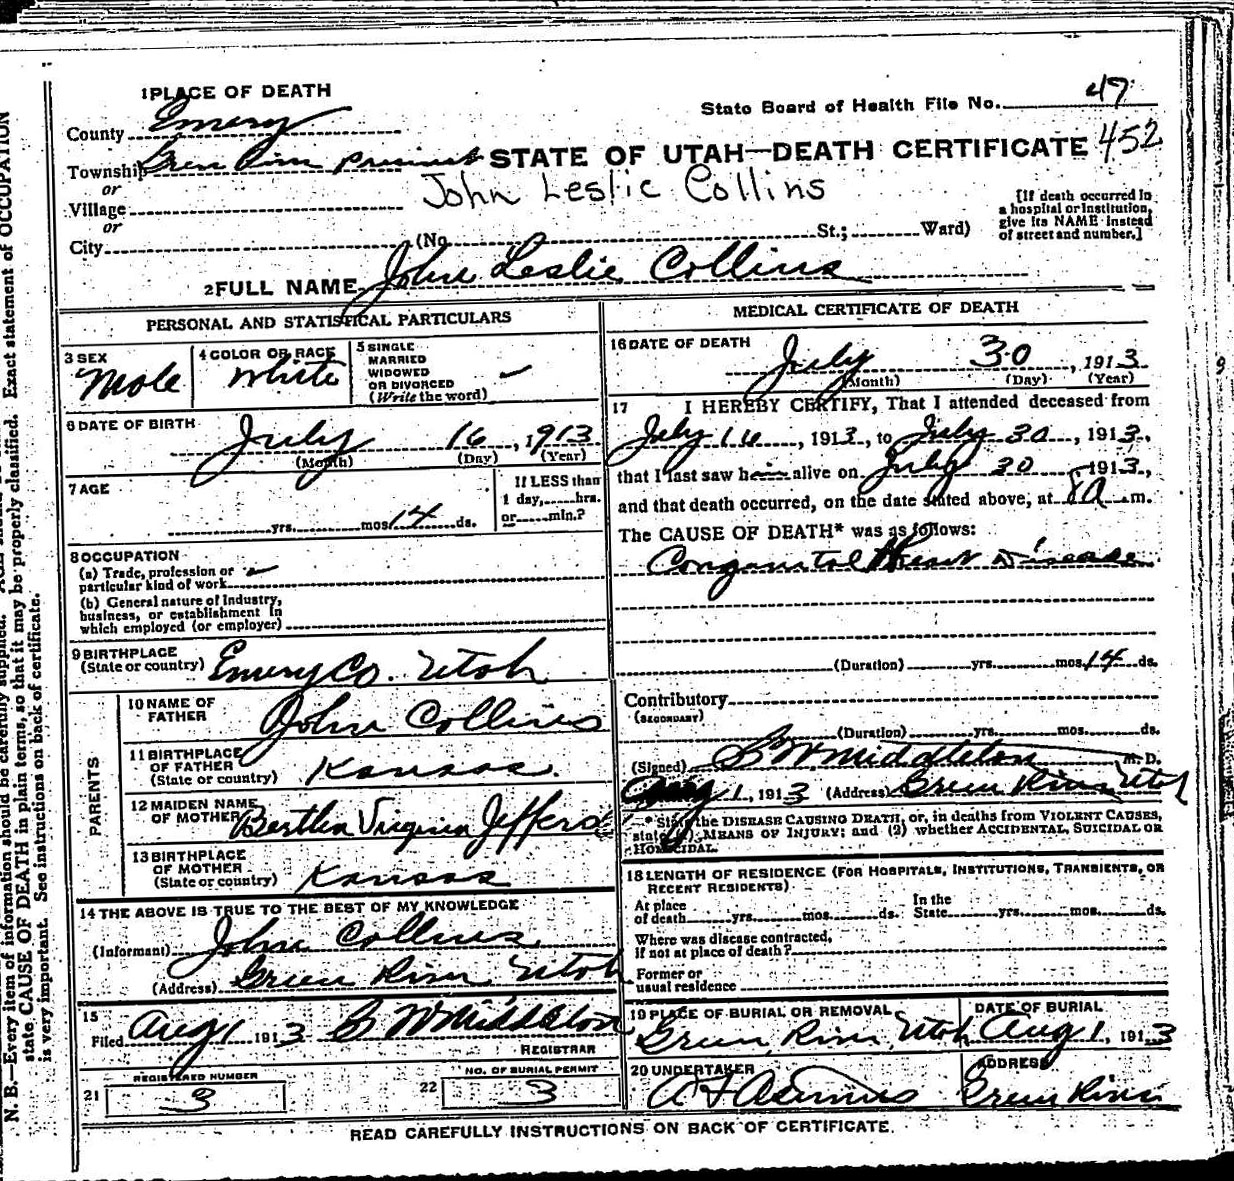 1 PLACE OF DEATH
State Board of Health File No. 47
County Emery
452
Township Green River precinct
STATE OF UTAH—DEATH CERTIFICATE
or
John Leslie Collins
Village
or
City (No. St.; Ward)
[If death occurred in
a hospital or institution,
give its NAME instead
of street and number.]
2 FULL NAME John Leslie Collins
PERSONAL AND STATISTICAL PARTICULARS
3 SEX
Male
4 COLOR OR RACE
White
5 SINGLE
MARRIED
WIDOWED
OR DIVORCED
(Write the word)
6 DATE OF BIRTH
July 16, 1913
(Month) (Day) (Year)
7 AGE
yrs. mos. 14 ds.
If LESS than
1 day, hrs.
or min.?
8 OCCUPATION
(a) Trade, profession or
particular kind of work
(b) General nature of industry,
business, or establishment in
which employed (or employer)
9 BIRTHPLACE
(State or country) Emery Co. Utah
PARENTS
10 NAME OF
FATHER John Collins
11 BIRTHPLACE
OF FATHER
(State or country) Kansas.
12 MAIDEN NAME
OF MOTHER Bertha Virginia
13 BIRTHPLACE
OF MOTHER
(State or country) Kansas
14 THE ABOVE IS TRUE TO THE BEST OF MY KNOWLEDGE
(Informant) John Collins
(Address) Green River Utah
15
Filed Aug 1 1913 Middleton
REGISTRAR
REGISTERED NUMBER
21 3
NO. OF BURIAL PERMIT
22 3
MEDICAL CERTIFICATE OF DEATH
16 DATE OF DEATH
July 30, 1913
(Month) (Day) (Year)
17 I HEREBY CERTIFY, That I attended deceased from
July 16, 1913, to July 30, 1913,
that I last saw him alive on July 30 1913,
and that death occurred, on the date stated above, at 8 a.m.
The CAUSE OF DEATH* was as follows:
Conganital Heart Disease
(Duration) yrs. mos. 14 ds.
Contributory
(SECONDARY)
(Duration) yrs. mos. ds.
(Signed) Middleton M. D.
1, 1913 (Address) Green River Utah
* State the DISEASE CAUSING DEATH, or, in deaths from VIOLENT CAUSES,
state (1) MEANS OF INJURY; and (2) whether ACCIDENTAL, SUICIDAL OR
HOMICIDAL.
18 LENGTH OF RESIDENCE (FOR HOSPITALS, INSTITUTIONS, TRANSIENTS, OR
RECENT RESIDENTS)
At place
of death yrs. mos. ds.
In the
State yrs. mos. ds.
Where was disease contracted,
if not at place of death?
Former or
usual residence
19 PLACE OF BURIAL OR REMOVAL
Green River, Utah
DATE OF BURIAL
Aug 1, 1913
20 UNDERTAKER
ADDRESS
Green River
READ CAREFULLY INSTRUCTIONS ON BACK OF CERTIFICATE.
N. B.—Every item of information should be carefully supplied.
state CAUSE OF DEATH in plain terms, so that it may be properly classified. Exact statement of OCCUPATION
is very important. See instructions on back of certificate.